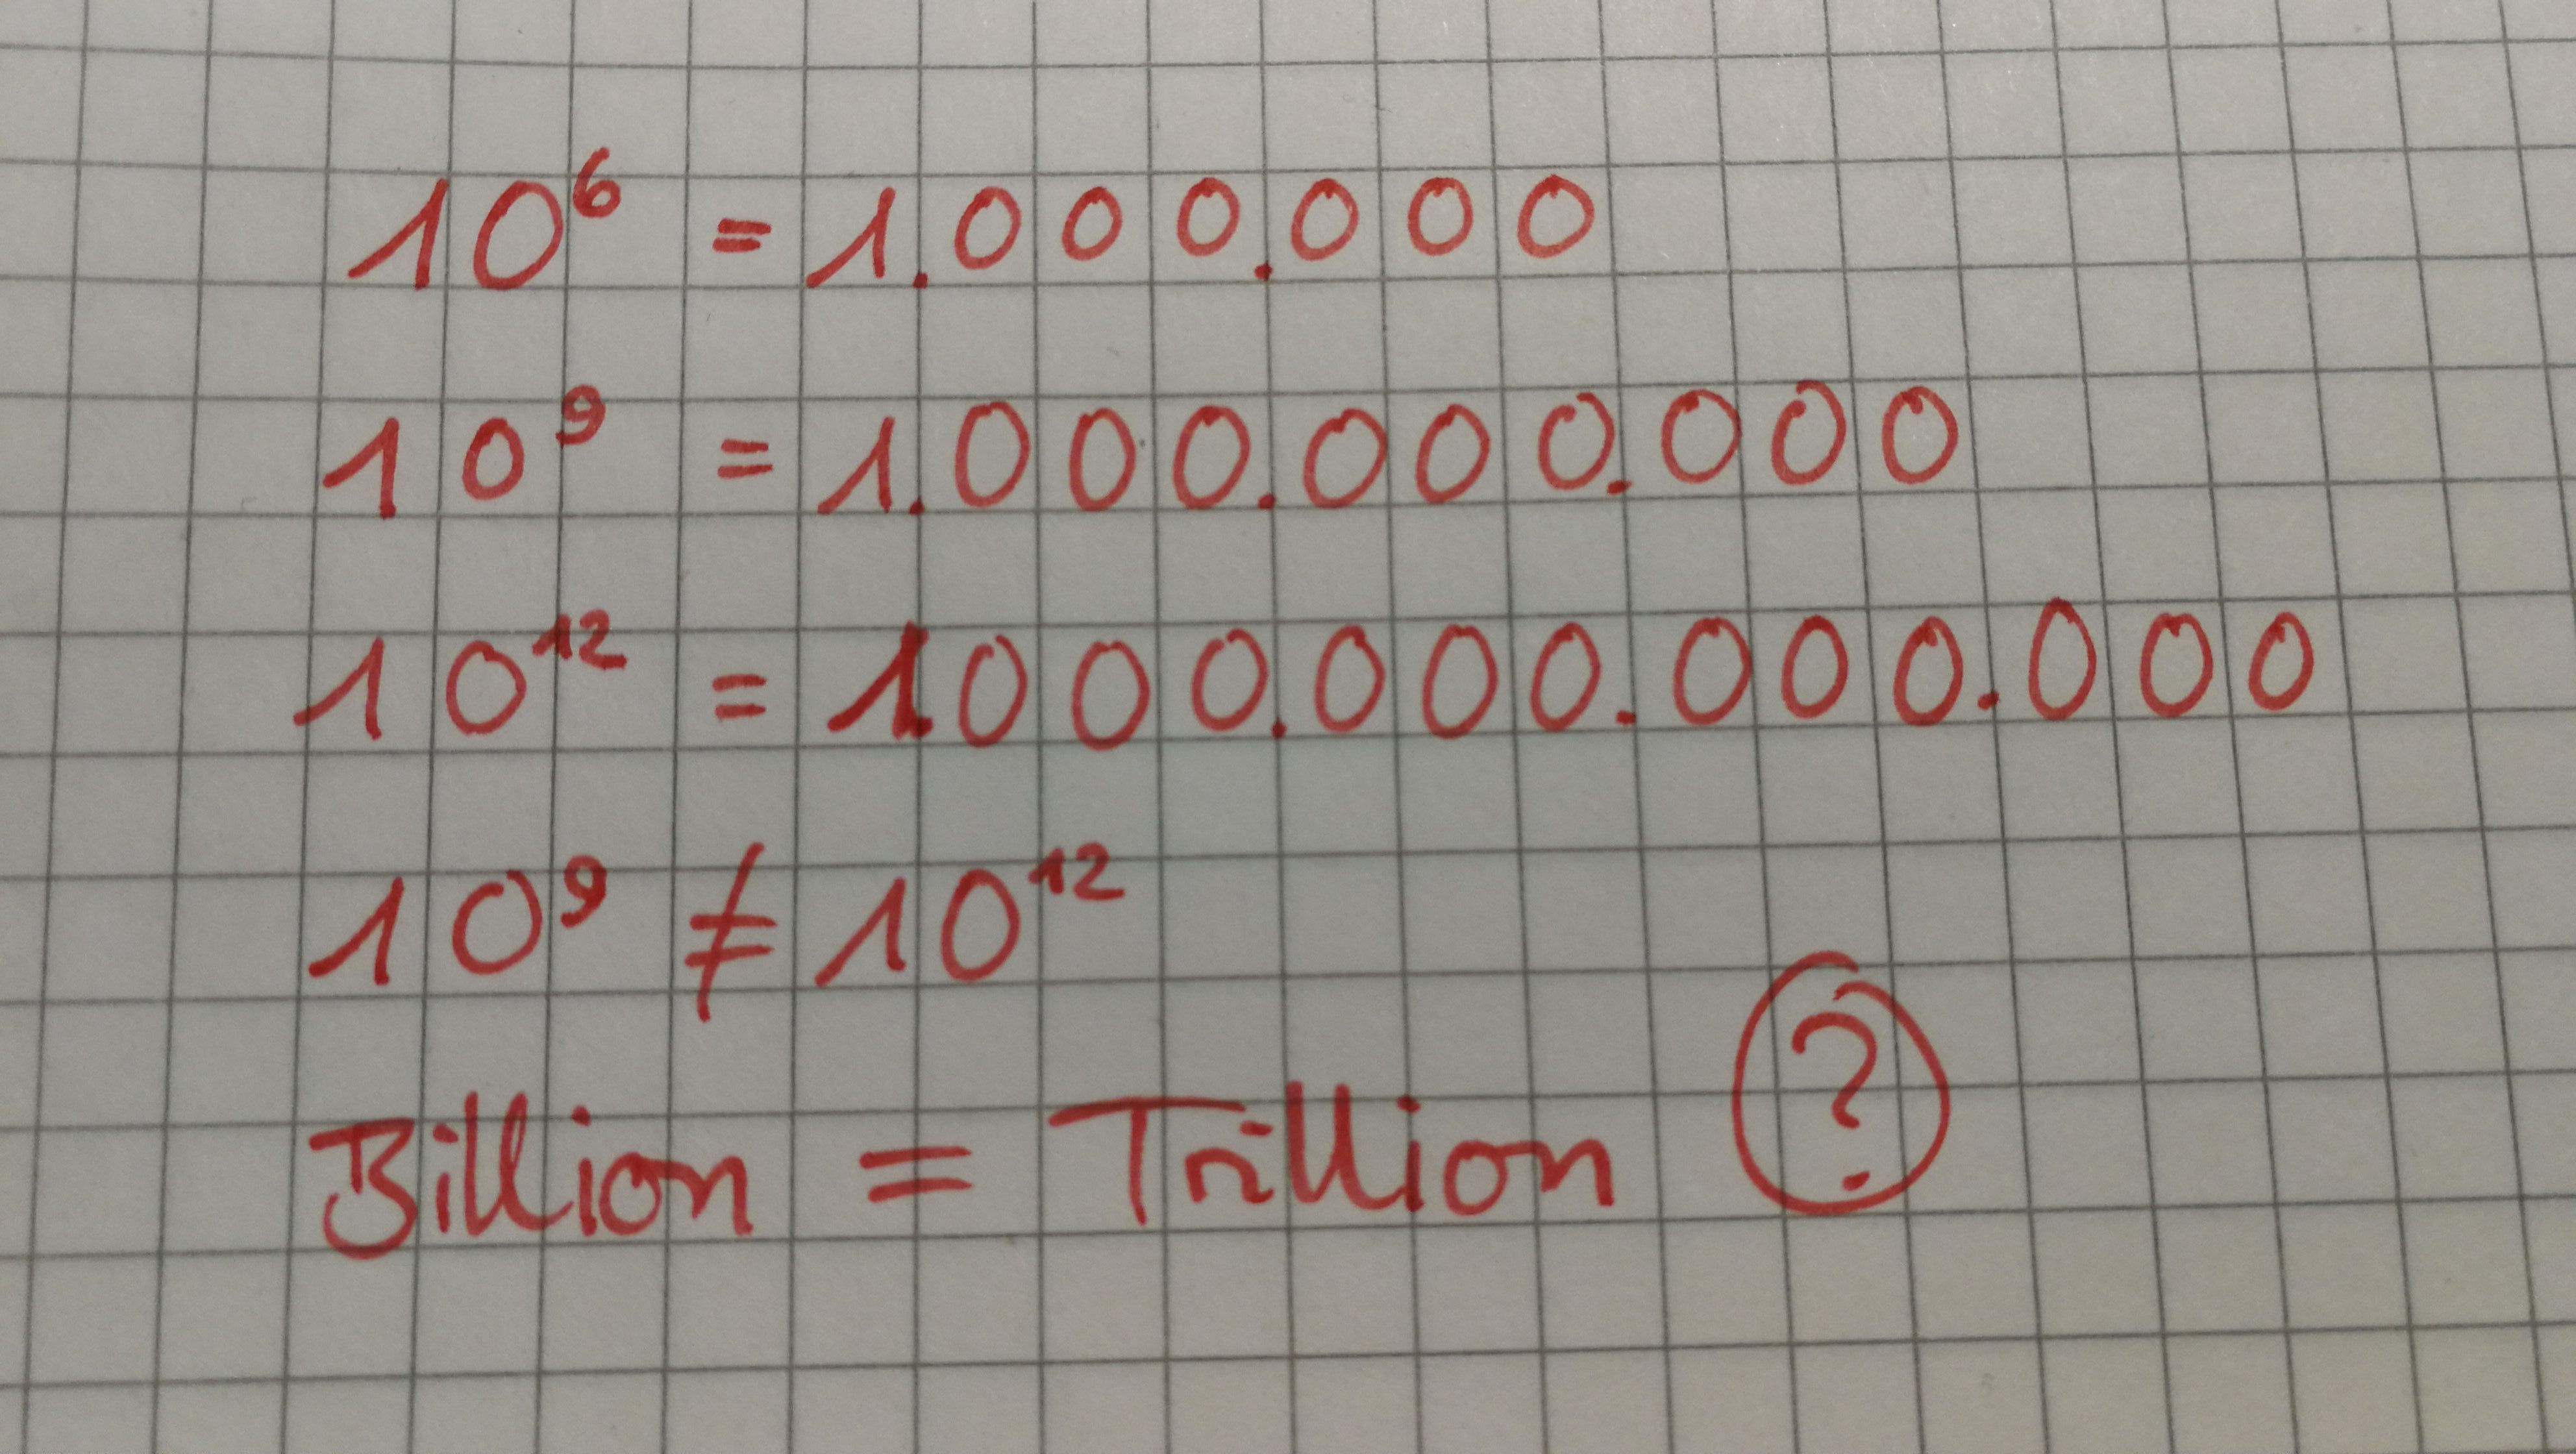 10⁶ = 1.000.000
10⁹ = 1.000.000.000
10¹² = 1.000.000.000.000
10⁹ ≠ 10¹²
Billion = Trillion ?